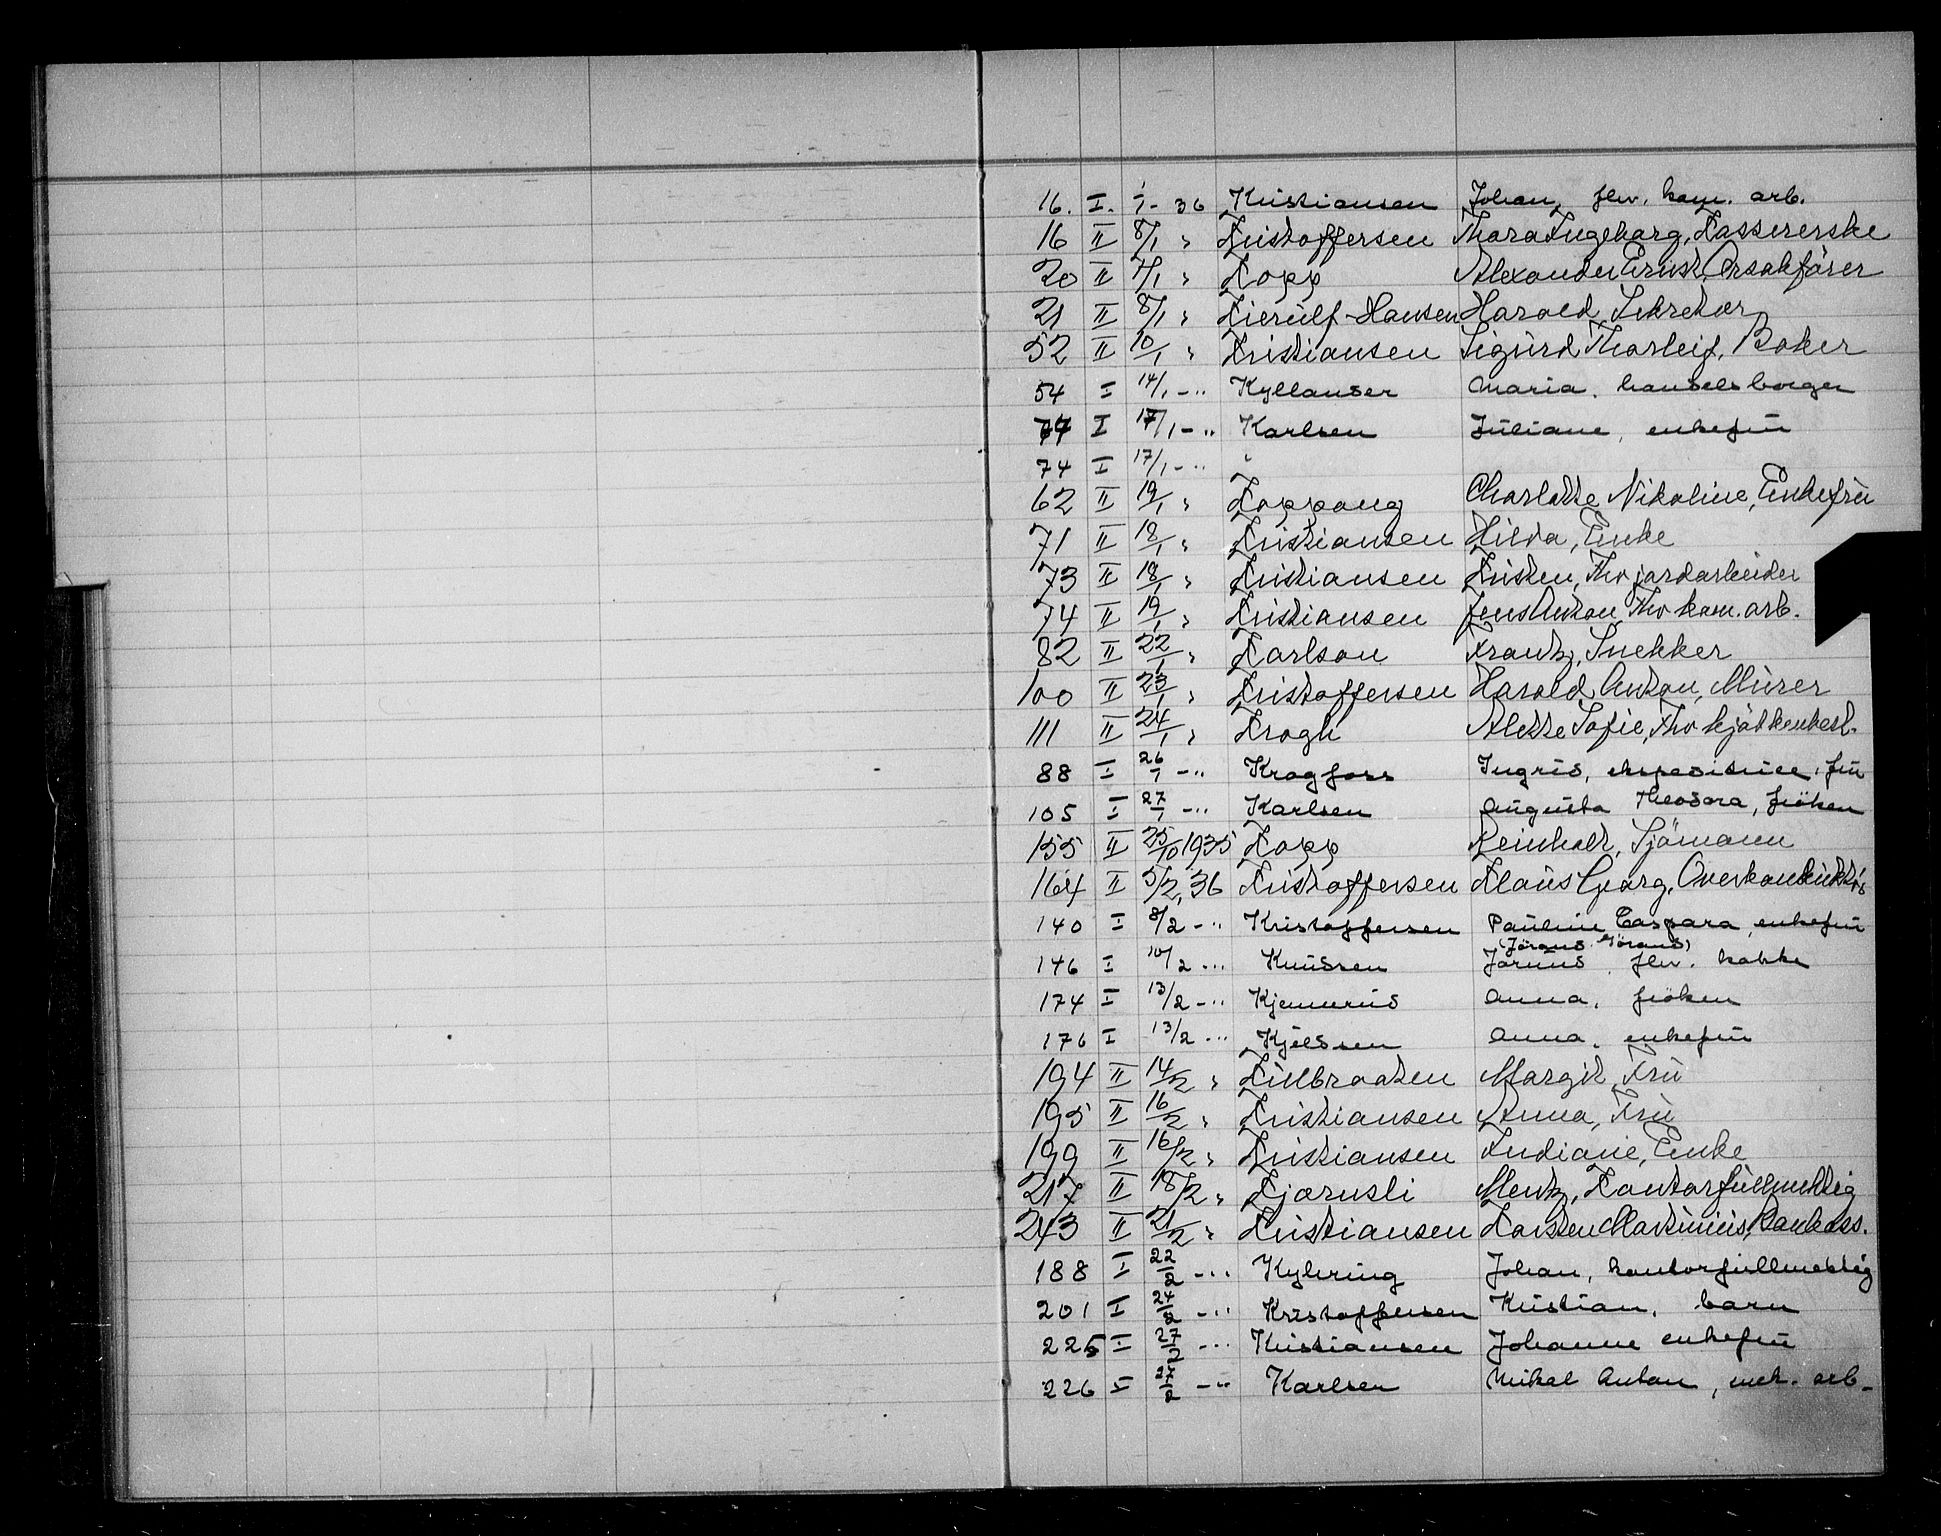 16. I. 1/1 - 36 Kristiansen Johan, fhv. kom. arb.
16 II 8/1 " Kristoffersen Thora Ingeborg, Kassererske
20 II 7/1 " Kopp Alexander Ernst, Orsakförer
21 II 8/1 " Kierulf-Hansen Harald, Sekretær
52 II 10/1 " Kristiansen Sigurd Thorleif, Baker
54 I 14/1 - " Kyllander Maria, handelsborger
74 I 17/1 - " Karlsen Juliane, enkefru
74 I 17/1 - " "
62 II 19/1 " Koppang Charlotte Nikoline, Enkefru
71 II 18/1 " Kristiansen Hilda, Enke
73 II 18/1 " Kristiansen Kristen, Fhv jordarbeider
74 II 19/1 " Kristiansen Jens Anton, Fhv kom. arb.
82 II 22/1 " Karlson Frantz, Snekker
100 II 23/1 " Kristoffersen Harald Anton, Murer
111 II 24/1 " Krogh Alette Sofie, Fhv kjøkkenbest.
88 I 26/1 - " Kragfoss Ingrid, ekspeditrice, fru
105 I 27/1 - " Karlsen Augusta Theodora, fröken
155 II 25/10 1935 Kopp Reinholt, Sjömann
164 II 5/2, 36 Kristoffersen Klaus Georg, Overkonduktör
140 I 8/2 - " Kristoffersen Pauline Caspara, enkefru
(Jörand Görand)
146 I 10/2 - " Knudsen Jörund, fhv. kokke
174 I 13/2 - " Kjennerud Anna, fröken
176 I 13/2 - " Kjelssen Anna, enkefru
194 II 14/2 " Killbraaten Margit, Fru
195 II 16/2 " Kristiansen Anna, Fru
199 II 16/2 " Kristiansen Indianie, Enke
217 II 18/2 " Kjærnsli Mentz, Kontorfullmektig
243 II 21/2 " Kristiansen Karsten Martinius, Bankass.
188 I 22/2 - " Kyhring Johan, kontorfullmektig
201 I 24/2 - " Kristoffersen Kristian, barn
225 I 27/2 - " Kristiansen Johanne enkefru
226 I 27/2 - " Karlsen Mikal Anton, mek. arb.